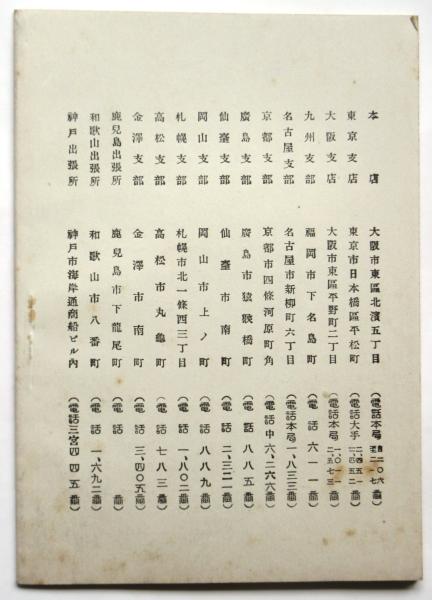 本店 大阪市東區北濱五丁目 (電話本局 自二〇六 至二一七 番)
東京支店 東京市日本橋區平松町 (電話大手 二、四五一 三、四五二 番)
大阪支店 大阪市東區平野町二丁目 (電話本局 一、〇一一 二、五七三 番)
九州支部 福岡市下名島町 (電話 六一一番)
名古屋支部 名古屋市新柳町六丁目 (電話本局一、八三三番)
京都支部 京都市四條河原町角 (電話中六、二六六番)
廣島支部 廣島市猿猴橋町 (電話 八八五番)
仙臺支部 仙臺市南町 (電話 二、三二一番)
岡山支部 岡山市上ノ町 (電話 八八九番)
札幌支部 札幌市北一條西三丁目 (電話 一、八〇二番)
高松支部 高松市丸龜町 (電話 七八三番)
金澤支部 金澤市南町 (電話 三、四〇五番)
鹿兒島出張所 鹿兒島市下龍尾町 (電話 番)
和歌山出張所 和歌山市八番町 (電話 一、六九二番)
神戸出張所 神戸市海岸通商船ビル內 (電話三宮四四五番)